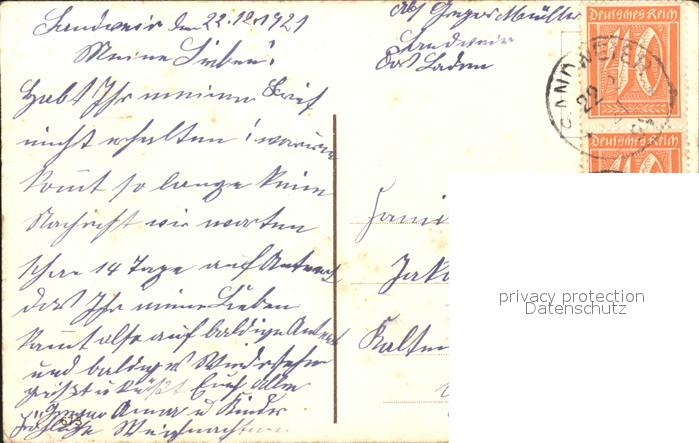 Sandweir den 22.12.1921
Meine Lieben!
Habt Ihr meinen Brief
nicht erhalten! warum
kommt so lange keine
Nachricht wir warten
schon 14 Tage auf Antwort
das Ihr meine Lieben
kommt also auf baldige Antwort
und baldiges Wiedersehen
grüßt u küßt Euch Alle
Gregor Anna u Kinder
Fröhliche Weihnachten
673
Abs Gregor Müller
Sandweir
Bad Baden
Deutsches Reich
40
SANDWEIER
22
Deutsches Reich
40
Fami
Jako
Kalten
privacy protection
Datenschutz